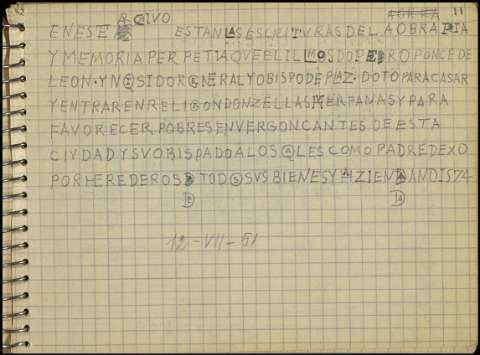 11
ENESTE ARCIVO ESTAN LAS ESCRITVRAS DEL A OBRA PIA
Y MEMORIA PERPETIA QVE EL ILLMO S DO PEDRO PONCE DE
LEON · Y NQSIDOR GENERAL Y OBISPO DE PLAZ · DOTO PARA CASAR
Y ENTRAR EN RELIGION DONZELLAS HVERFANAS Y PARA
FAVORECER POBRES ENVERGONCANTES DE ESTA
CIVDAD Y SV OBISPADO A LOS QALES COMO PADRE DEXO
POR HEREDEROS D TODOS SVS BIENES Y AZIENDA AN DI 1574
E DA
12-VII-51